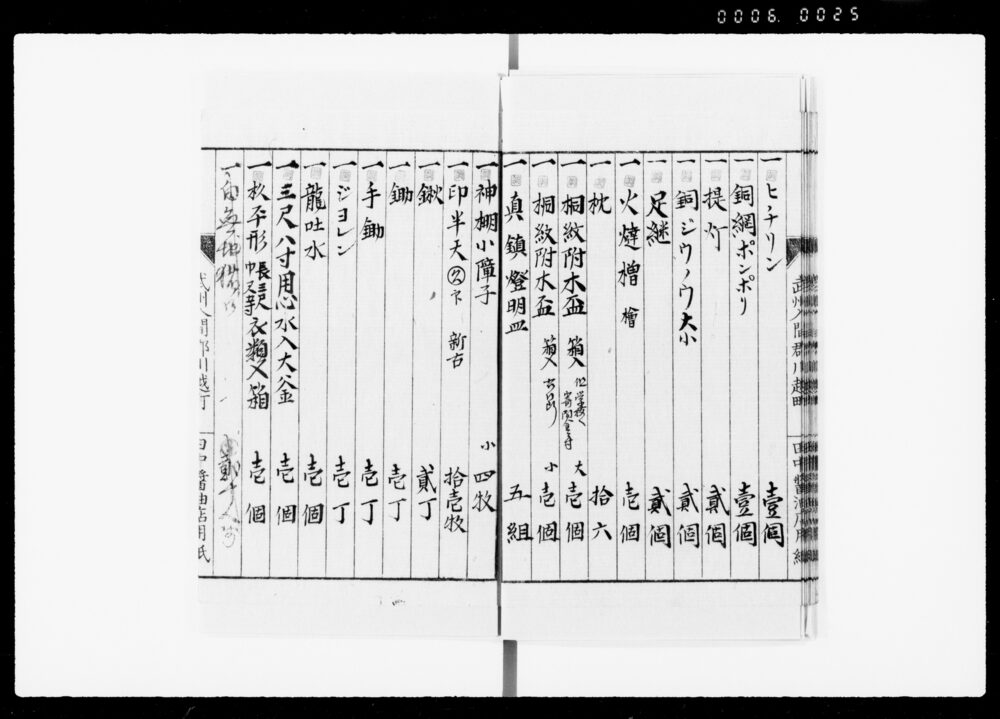 0006 0025
武州入間郡川越町 田中醤油店用紙
一 ヒチリン 壹個
一 銅網ボンボリ 壹個
一 提灯 貳個
一 銅ジウノウ大小 貳個
一 足継 貳個
一 火燵櫓 檜 壱個
一 枕 拾六
一 桐紋附木盃 箱入 大 壱個
一 桐紋附木盃 箱入 小 壱個
一 真鎮燈明皿 五組
一 神棚小障子 小 四枚
一 印半天 久 下 新古 拾壱枚
一 鍬 貳丁
一 鋤 壱丁
一 手鋤 壱丁
一 ジヨレン 壱丁
一 龍吐水 壱個
一 三尺八寸用心水入大釜 壱個
一 枩平形 衣類入箱 壱個
一 白無地
武州入間郡川越町 田中醤油店用紙